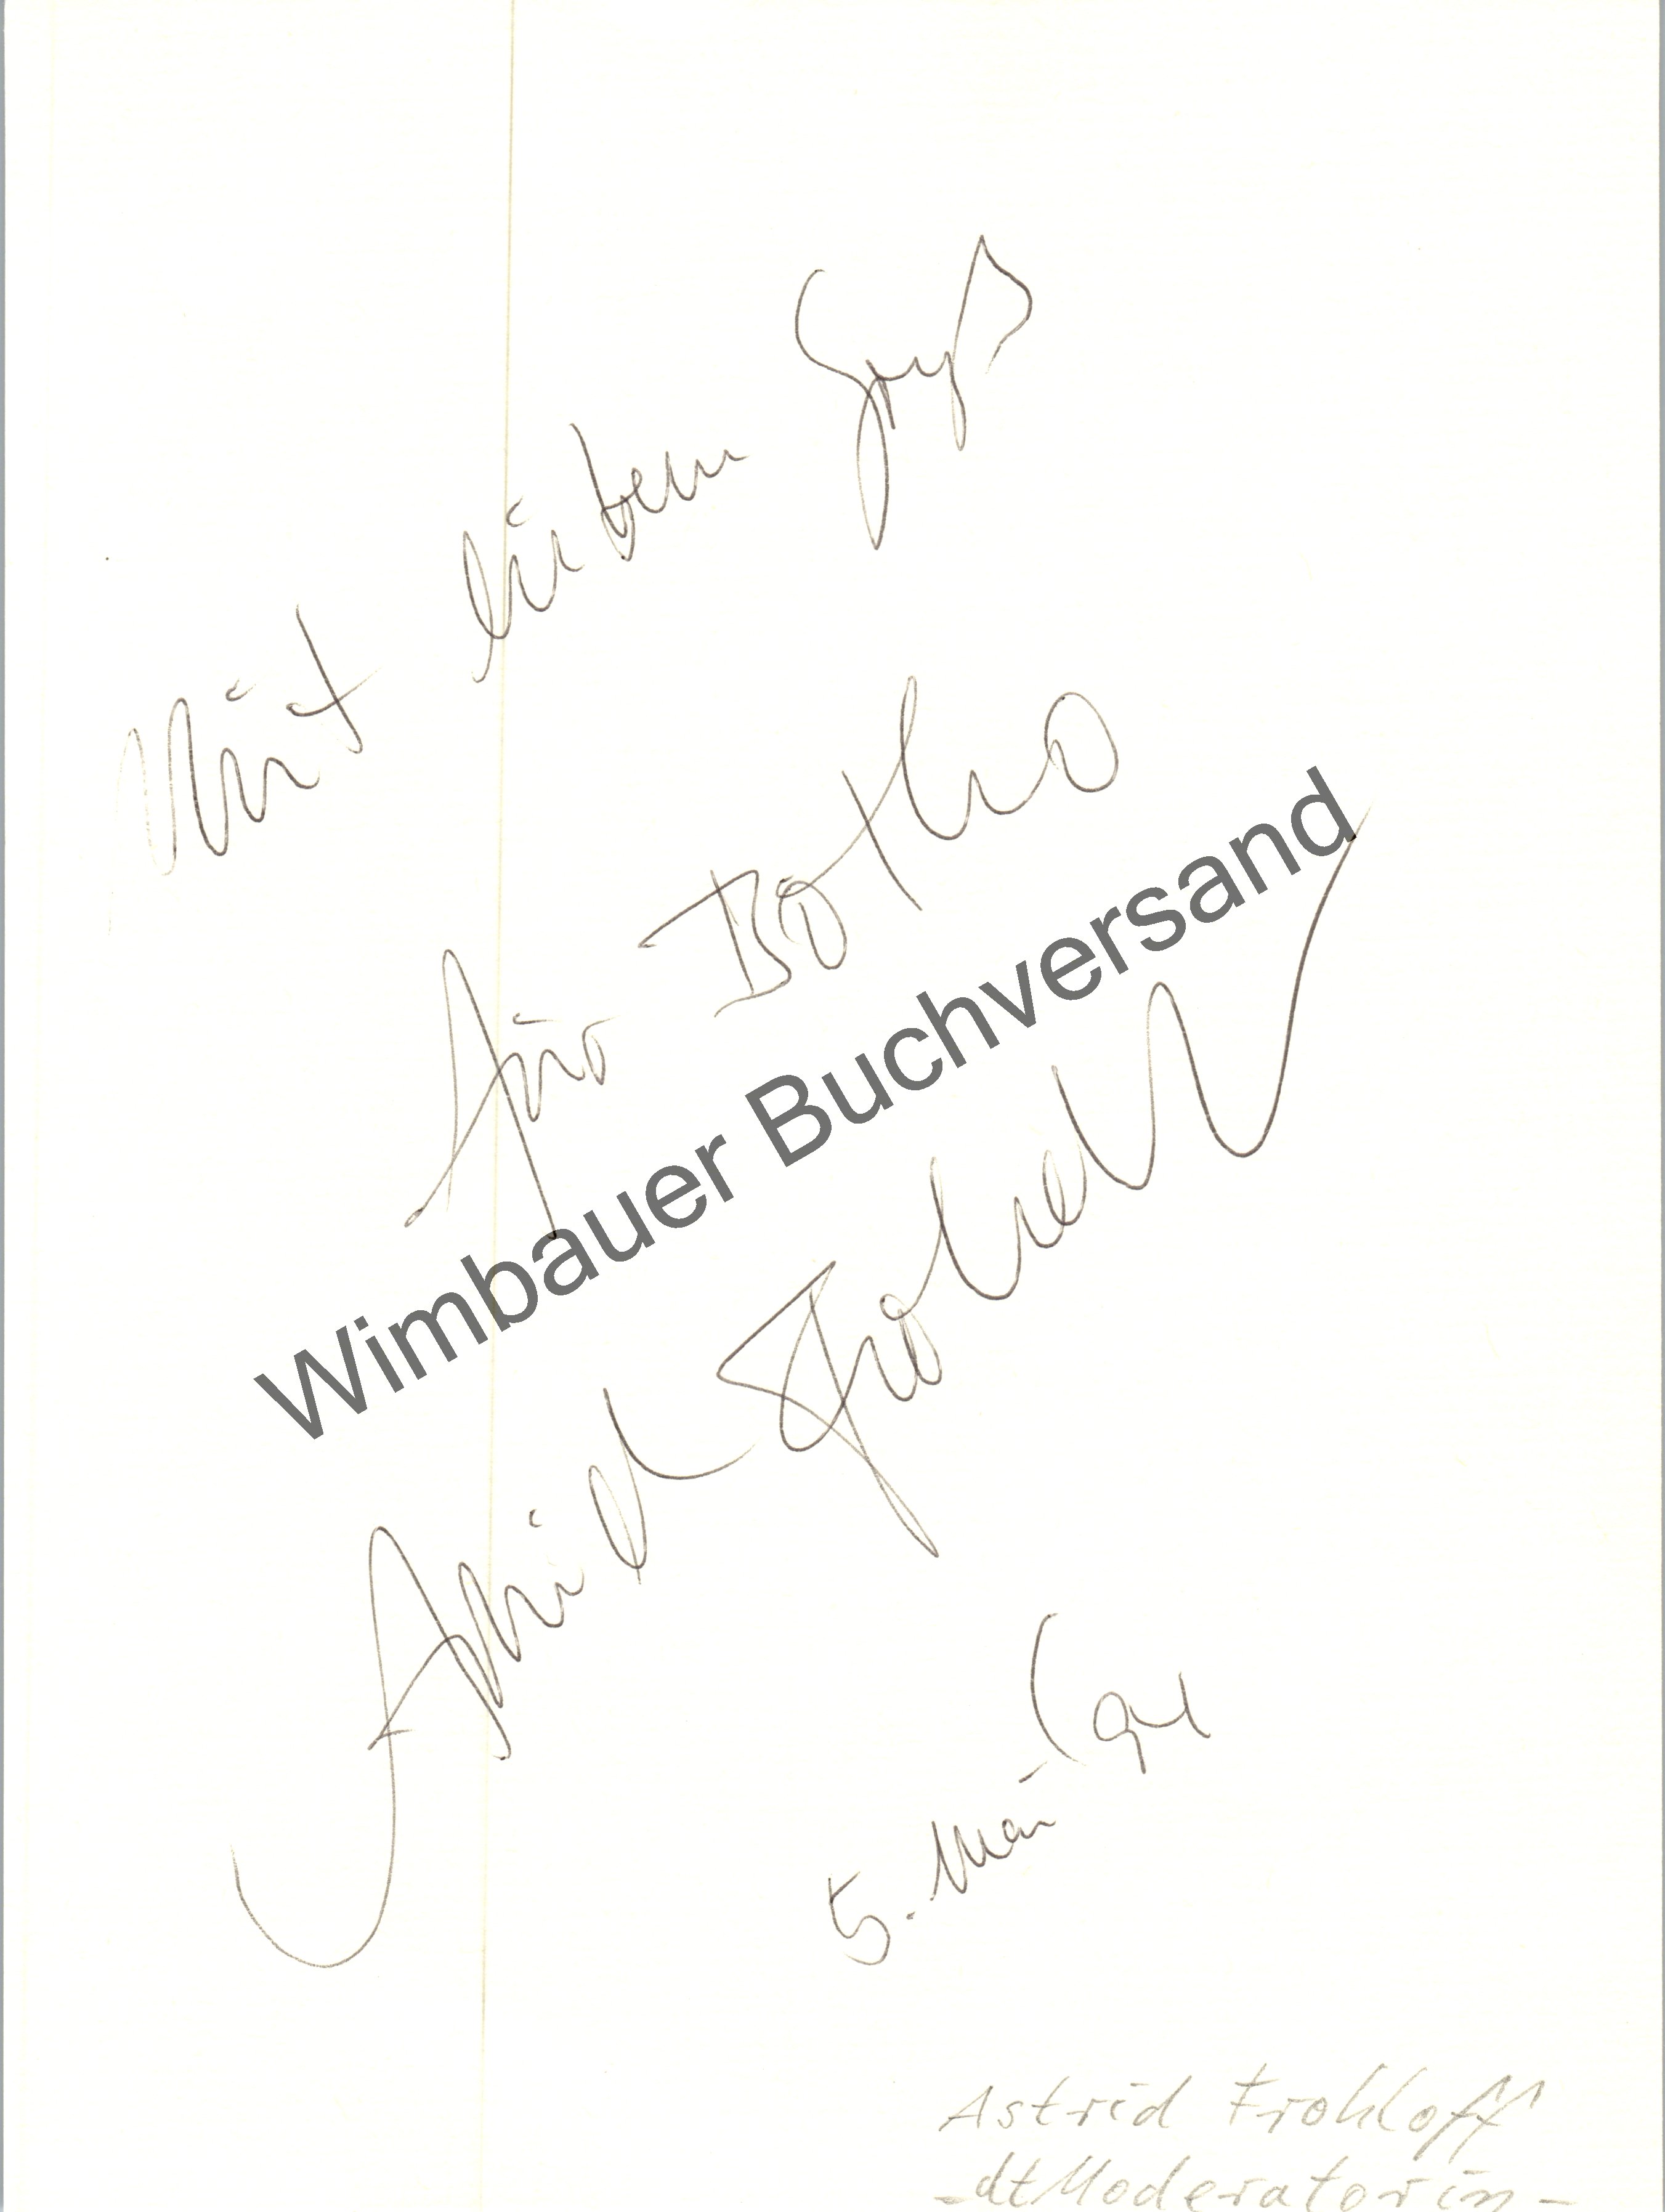 Mit liebem Gruß
für Botho
Wimbauer Buchversand
Astrid Frohloff
5. Mai
Astrid Frohloff
-dt Moderatorin-